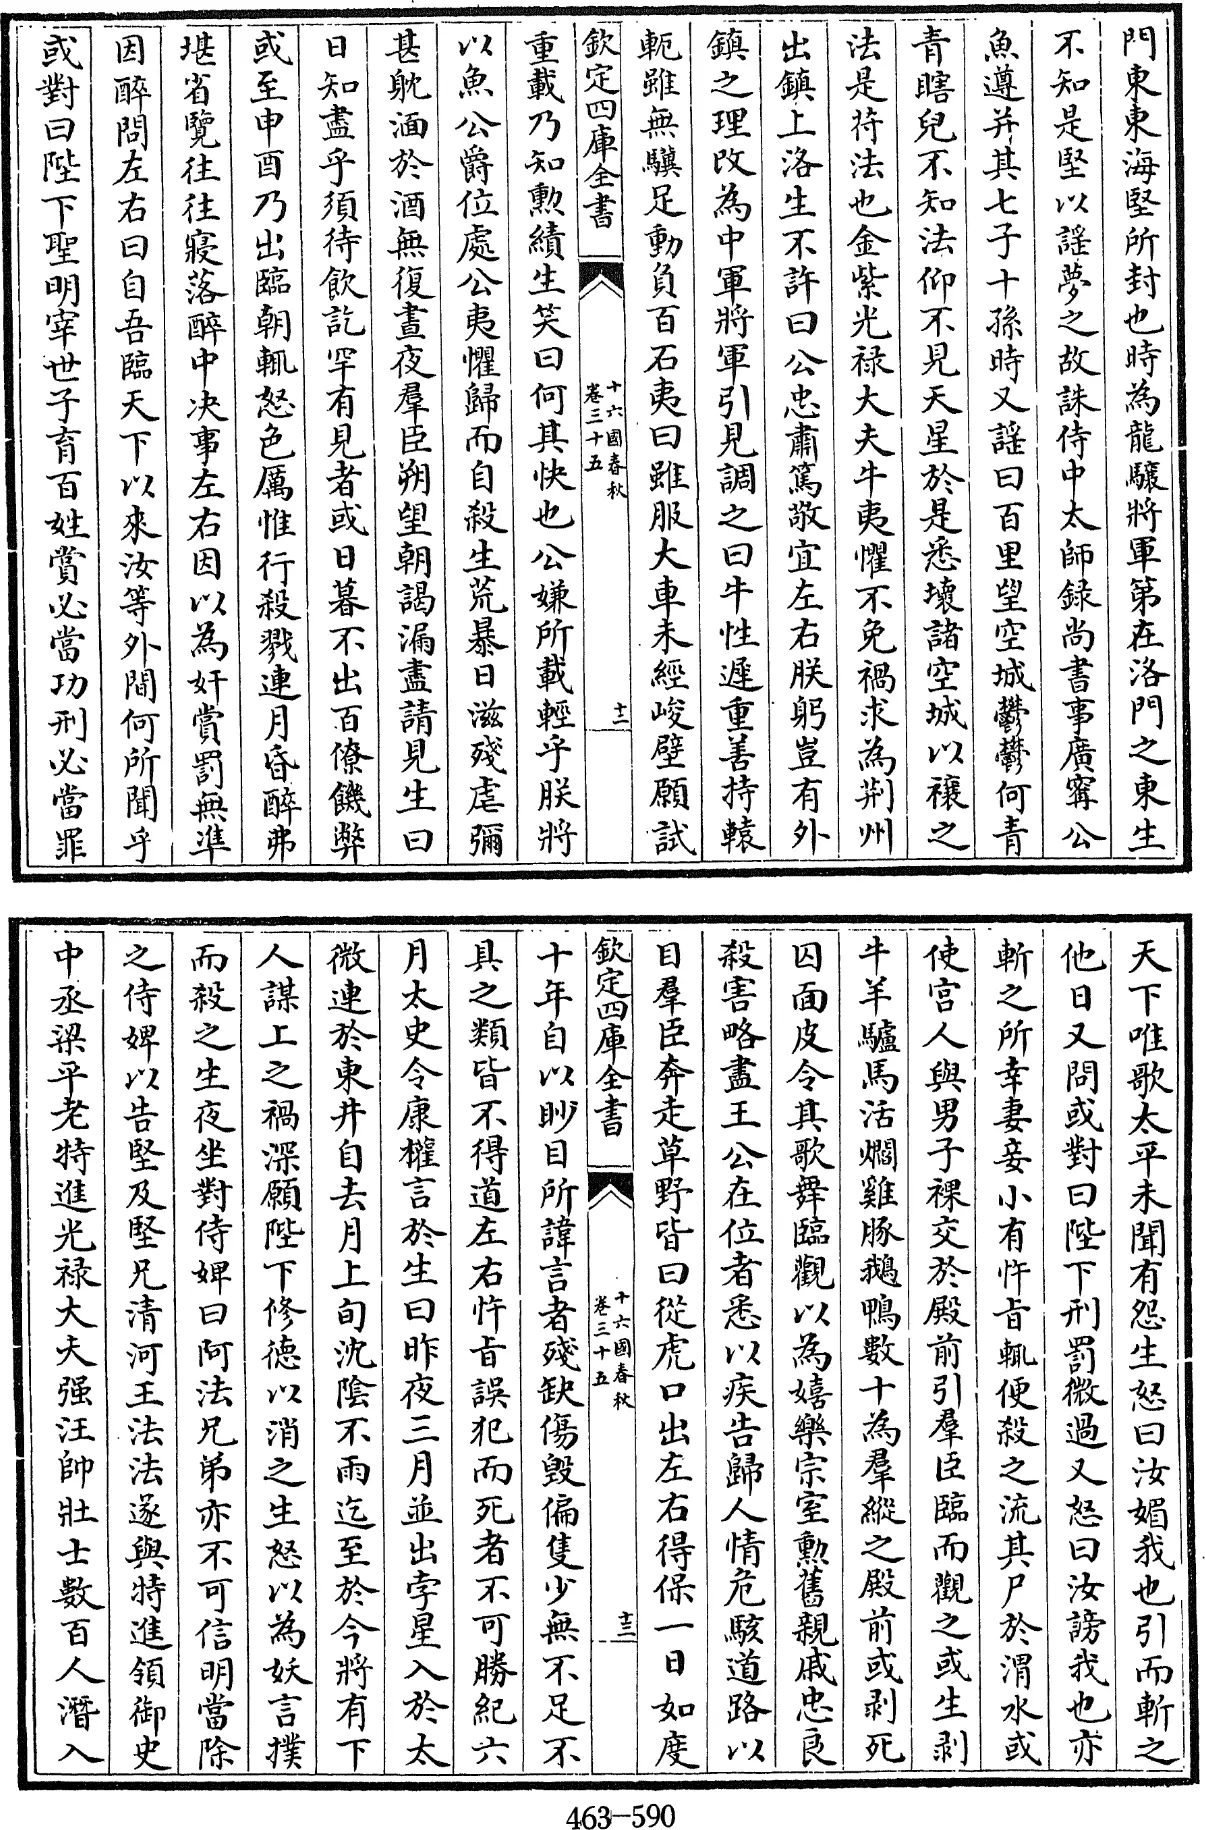 門東東海堅所封也時為龍驤將軍第在洛門之東生
不知是堅以謡夢之故誅侍中太師録尚書事廣寗公
魚遵并其七子十孫時又謡曰百里望空城鬱鬱何青
青瞎兒不知法仰不見天星於是悉壞諸空城以禳之
法是苻法也金紫光禄大夫牛夷懼不免禍求為荆州
出鎮上洛生不許曰公忠肅篤敬宜左右朕躬豈有外
鎮之理改為中軍將軍引見調之曰牛性遲重善持轅
軛雖無驥足動負百石夷曰雖服大車未經峻壁願試
欽定四庫全書
十六國春秋
卷三十五
十二
重載乃知勲績生笑曰何其快也公嫌所載輕乎朕將
以魚公爵位處公夷懼歸而自殺生荒暴日滋殘虐彌
甚躭湎於酒無復晝夜羣臣朔望朝謁漏盡請見生曰
日知盡乎須待飲訖罕有見者或日暮不出百僚饑弊
或至申酉乃出臨朝輒怒色厲惟行殺戮連月昏醉弗
堪省覽往往寢落醉中决事左右因以為奸賞罰無凖
因醉問左右曰自吾臨天下以來汝等外間何所聞乎
或對曰陛下聖明宰世子育百姓賞必當功刑必當罪
天下唯歌太平未聞有怨生怒曰汝媚我也引而斬之
他日又問或對曰陛下刑罰微過又怒曰汝謗我也亦
斬之所幸妻妾小有忤旨輒便殺之流其尸於渭水或
使宫人與男子裸交於殿前引羣臣臨而觀之或生剥
牛羊驢馬活爓雞豚鵝鴨數十為羣縱之殿前或剥死
囚面皮令其歌舞臨觀以為嬉樂宗室勲舊親戚忠良
殺害略盡王公在位者悉以疾告歸人情危駭道路以
目羣臣奔走草野皆曰從虎口出左右得保一日如度
欽定四庫全書
十六國春秋
卷三十五
十三
十年自以眇目所諱言者殘缺傷毁偏隻少無不足不
具之類皆不得道左右忤旨誤犯而死者不可勝紀六
月太史令康權言於生曰昨夜三月並出孛星入於太
微連於東井自去月上旬沈陰不雨迄至於今將有下
人謀上之禍深願陛下修德以消之生怒以為妖言撲
而殺之生夜坐對侍婢曰阿法兄弟亦不可信明當除
之侍婢以告堅及堅兄清河王法法遂與特進領御史
中丞梁平老特進光禄大夫强汪帥壯士數百人潛入
463-590